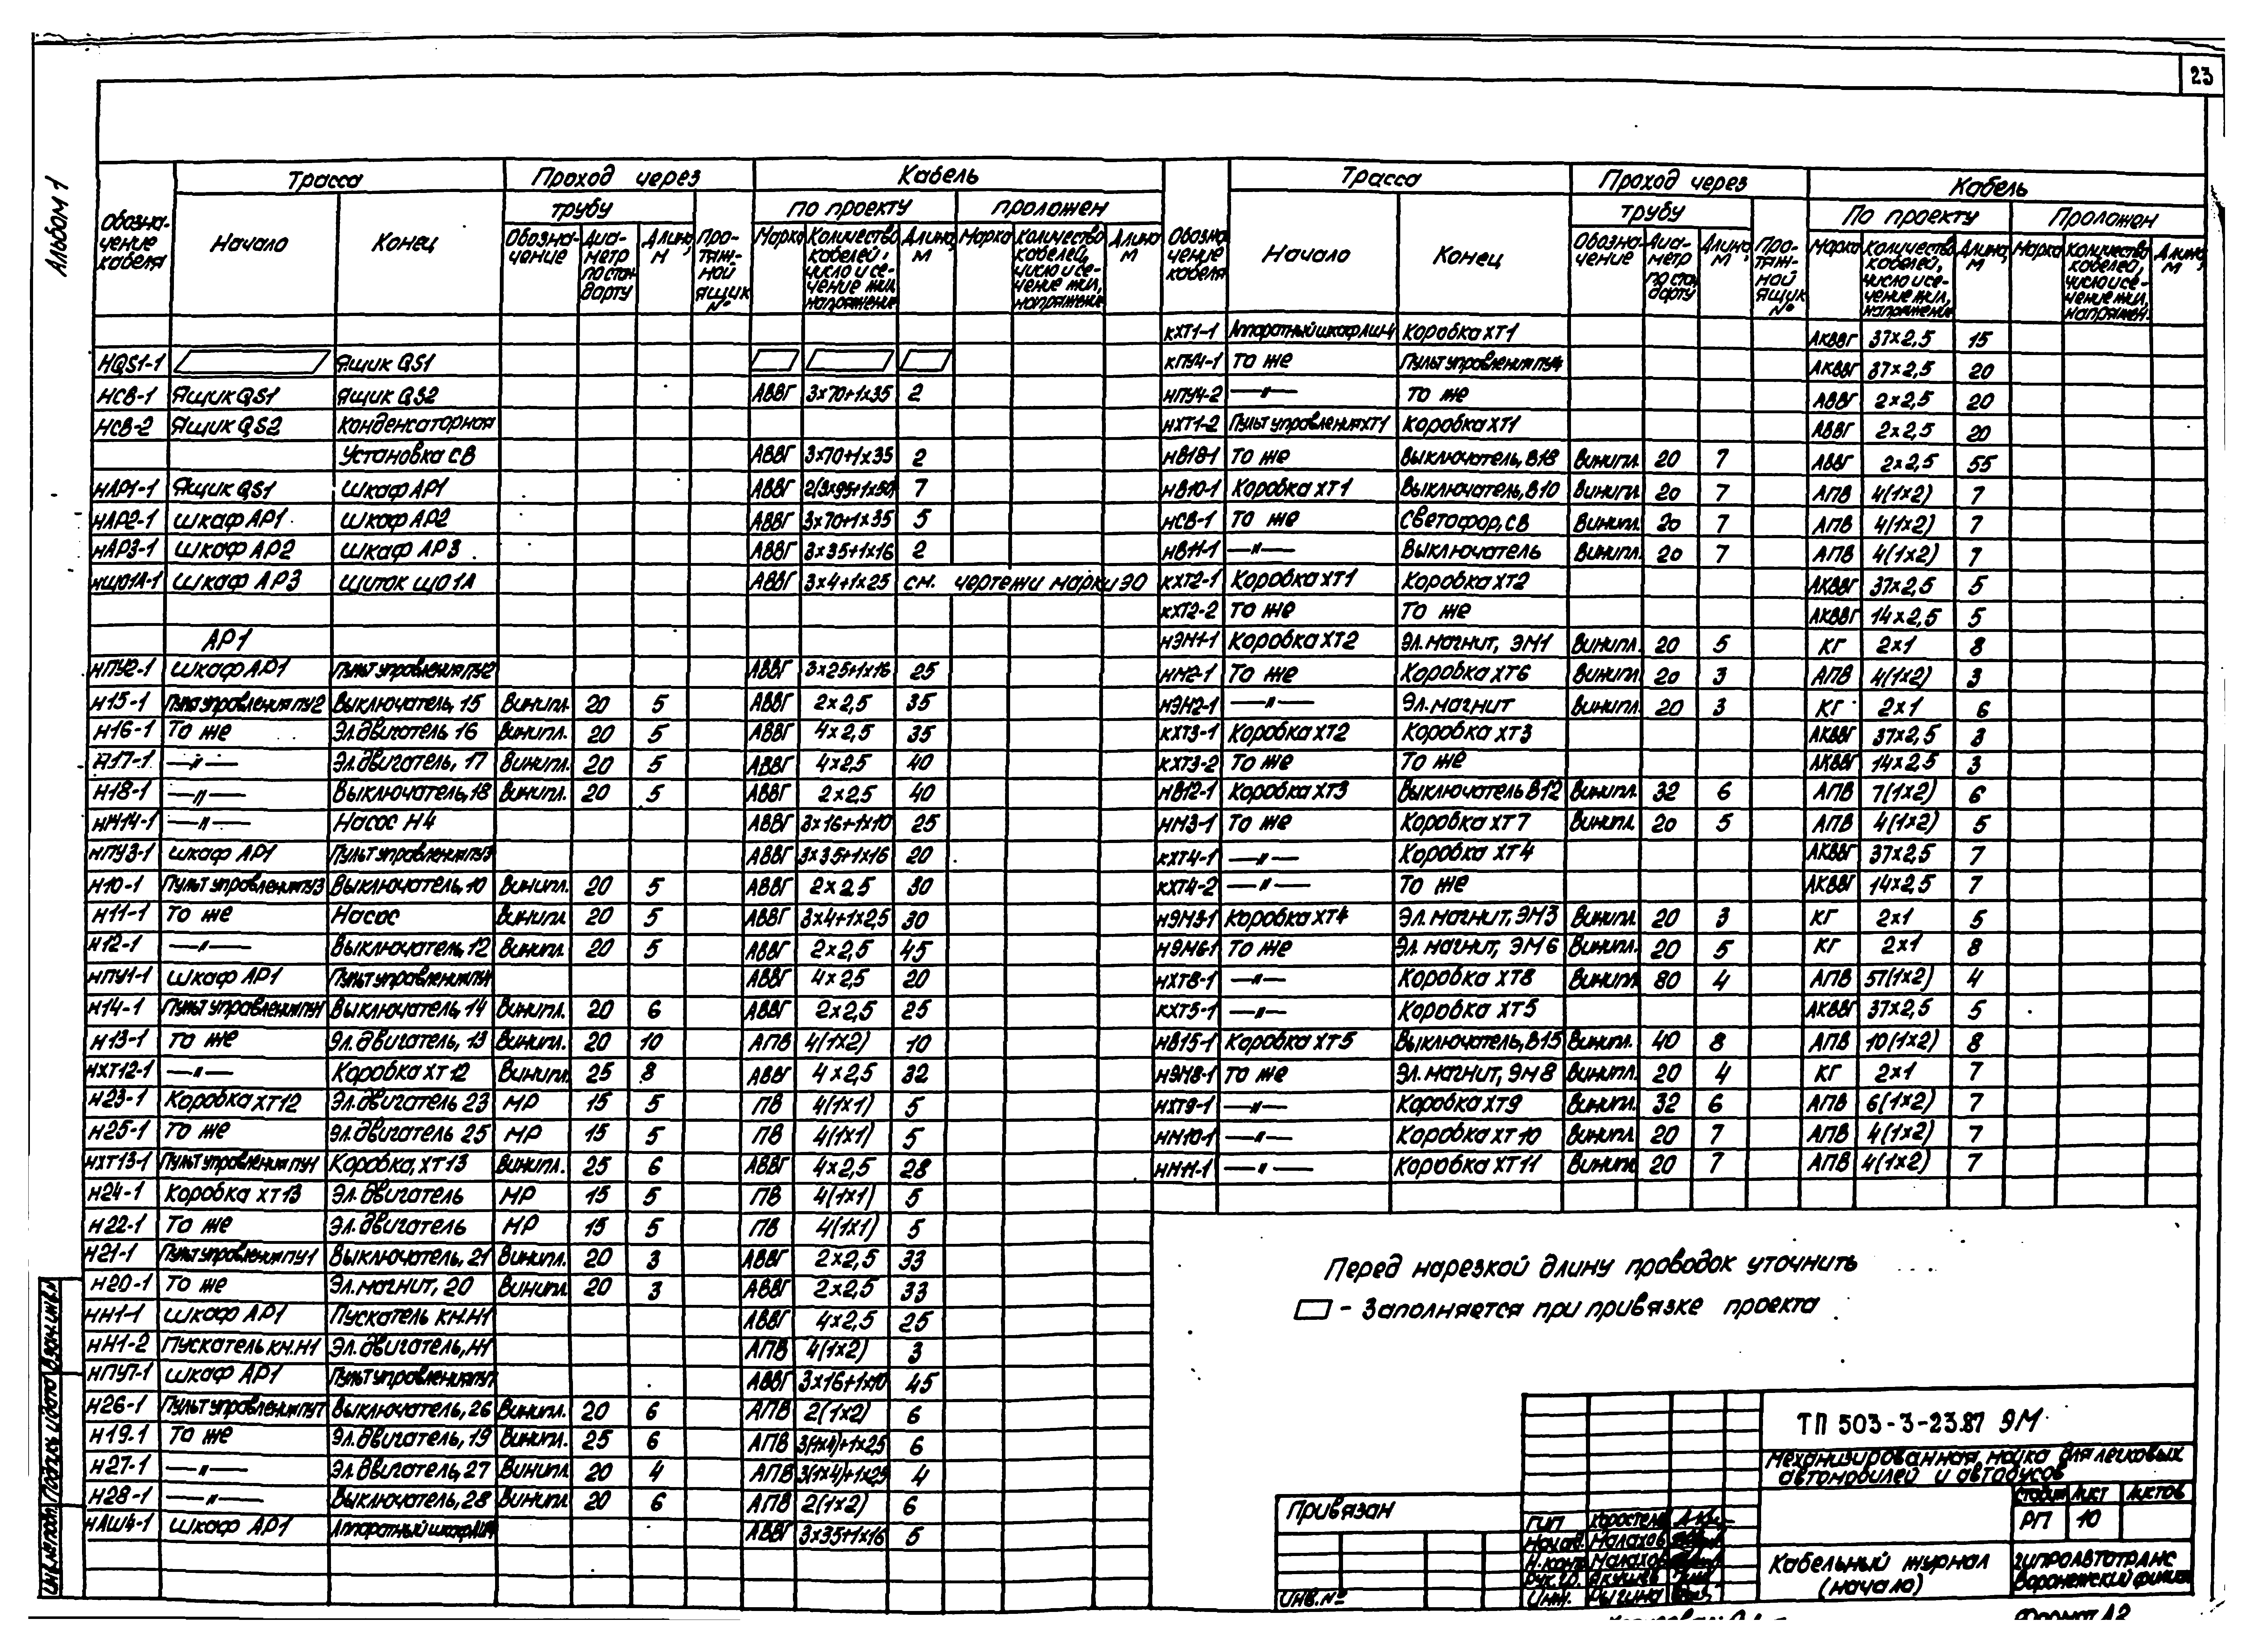 23
Альбом 1
Обозначение кабеля | Трасса | Проход через | Кабель
Начало | Конец | трубу | Протяжной ящик № | По проекту | проложен
Обозначение | Диаметр по стандарту | Длина, м | Марка | Количество кабелей, число и сечение жил, напряжение | Длина, м | Марка | Количество кабелей, число и сечение жил, напряжение | Длина, м
НQS1-1 Ящик QS1
НСВ-1 Ящик QS1 Ящик QS2 АВВГ 3×70+1×35 2
НСВ-2 Ящик QS2 Конденсаторная
Установка СВ АВВГ 3×70+1×35 2
НАР1-1 Ящик QS1 Шкаф АР1 АВВГ 2(3×95+1×50) 7
НАР2-1 Шкаф АР1 Шкаф АР2 АВВГ 3×70+1×35 5
НАР3-1 Шкаф АР2 Шкаф АР3 АВВГ 3×35+1×16 2
НЩО1А-1 Шкаф АР3 Щиток ЩО1А АВВГ 3×4+1×25 см. чертежи марки ЭО
АР1
НПУ2-1 Шкаф АР1 Пульт управления ПУ2 АВВГ 3×25+1×16 25
Н15-1 Пульт управления ПУ2 Выключатель, 15 Винипл. 20 5 АВВГ 2×2,5 35
Н16-1 То же Эл.двигатель 16 Винипл. 20 5 АВВГ 4×2,5 35
Н17-1 —"— Эл.двигатель, 17 Винипл. 20 5 АВВГ 4×2,5 40
Н18-1 —"— Выключатель, 18 Винипл. 20 5 АВВГ 2×2,5 40
НН14-1 —"— Насос Н4 АВВГ 3×16+1×10 25
НПУ3-1 Шкаф АР1 Пульт управления ПУ3 АВВГ 3×35+1×16 20
Н10-1 Пульт управления ПУ3 Выключатель, 10 Винипл. 20 5 АВВГ 2×2,5 30
Н11-1 То же Насос Винипл. 20 5 АВВГ 3×4+1×2,5 30
Н12-1 —"— Выключатель, 12 Винипл. 20 5 АВВГ 2×2,5 45
НПУ1-1 Шкаф АР1 Пульт управления ПУ1 АВВГ 4×2,5 20
Н14-1 Пульт управления ПУ1 Выключатель, 14 Винипл. 20 6 АВВГ 2×2,5 25
Н13-1 То же Эл.двигатель, 13 Винипл. 20 10 АПВ 4(1×2) 10
НХТ12-1 —"— Коробка ХТ12 Винипл. 25 8 АВВГ 4×2,5 32
Н23-1 Коробка ХТ12 Эл.двигатель 23 МР 15 5 ПВ 4(1×1) 5
Н25-1 То же Эл.двигатель 25 МР 15 5 ПВ 4(1×1) 5
НХТ13-1 Пульт управления ПУ1 Коробка, ХТ13 Винипл. 25 6 АВВГ 4×2,5 28
Н24-1 Коробка ХТ13 Эл.двигатель МР 15 5 ПВ 4(1×1) 5
Н22-1 То же Эл.двигатель МР 15 5 ПВ 4(1×1) 5
Н21-1 Пульт управления ПУ1 Выключатель, 21 Винипл. 20 3 АВВГ 2×2,5 33
Н20-1 То же Эл.магнит, 20 Винипл. 20 3 АВВГ 2×2,5 33
НН1-1 Шкаф АР1 Пускатель КМ.Н1 АВВГ 4×2,5 25
НН1-2 Пускатель КМ.Н1 Эл.двигатель, Н1 АПВ 4(1×2) 3
НПУ7-1 Шкаф АР1 Пульт управления ПУ7 АВВГ 3×16+1×10 45
Н26-1 Пульт управления ПУ7 Выключатель, 26 Винипл. 20 6 АПВ 2(1×2) 6
Н19.1 То же Эл.двигатель, 19 Винипл. 25 6 АПВ 3(1×4)+1×2,5 6
Н27-1 —"— Эл.двигатель, 27 Винипл. 20 4 АПВ 3(1×4)+1×2,5 4
Н28-1 —"— Выключатель, 28 Винипл. 20 6 АПВ 2(1×2) 6
НАШ4-1 Шкаф АР1 Аппаратный шкаф АШ4 АВВГ 3×35+1×16 5
Обозначение кабеля | Трасса | Проход через | Кабель
Начало | Конец | трубу | Протяжной ящик № | По проекту | Проложен
Обозначение | Диаметр по стандарту | Длина, м | Марка | Количество кабелей, число и сечение жил, напряжение | Длина, м | Марка | Количество кабелей, число и сечение жил, напряжен. | Длина, м
КХТ1-1 Аппаратный шкаф АШ4 Коробка ХТ1 АКВВГ 37×2,5 15
КПУ4-1 То же Пульт управления ПУ4 АКВВГ 37×2,5 20
НПУ4-2 —"— То же АВВГ 2×2,5 20
НХТ1-2 Пульт управления ХТ1 Коробка ХТ1 АВВГ 2×2,5 20
НВ18-1 То же Выключатель, В18 Винипл. 20 7 АВВГ 2×2,5 55
НВ10-1 Коробка ХТ1 Выключатель, В10 Винипл. 20 7 АПВ 4(1×2) 7
НСВ-1 То же Светофор, СВ Винипл. 20 7 АПВ 4(1×2) 7
НВ11-1 —"— Выключатель Винипл. 20 7 АПВ 4(1×2) 7
КХТ2-1 Коробка ХТ1 Коробка ХТ2 АКВВГ 37×2,5 5
КХТ2-2 То же То же АКВВГ 14×2,5 5
НЭМ1-1 Коробка ХТ2 Эл.магнит, ЭМ1 Винипл. 20 5 КГ 2×1 8
НМ2-1 То же Коробка ХТ6 Винипл. 20 3 АПВ 4(1×2) 3
НЭМ2-1 —"— Эл.магнит Винипл. 20 3 КГ 2×1 6
КХТ3-1 Коробка ХТ2 Коробка ХТ3 АКВВГ 37×2,5 3
КХТ3-2 То же То же АКВВГ 14×2,5 3
НВ12-1 Коробка ХТ3 Выключатель В12 Винипл. 32 6 АПВ 7(1×2) 6
НМ3-1 То же Коробка ХТ7 Винипл. 20 5 АПВ 4(1×2) 5
КХТ4-1 —"— Коробка ХТ4 АКВВГ 37×2,5 7
КХТ4-2 —"— То же АКВВГ 14×2,5 7
НЭМ3-1 Коробка ХТ4 Эл.магнит, ЭМ3 Винипл. 20 3 КГ 2×1 5
НЭМ6-1 То же Эл.магнит, ЭМ6 Винипл. 20 5 КГ 2×1 8
НХТ8-1 —"— Коробка ХТ8 Винипл. 80 4 АПВ 57(1×2) 4
КХТ5-1 —"— Коробка ХТ5 АКВВГ 37×2,5 5
НВ15-1 Коробка ХТ5 Выключатель, В15 Винипл. 40 8 АПВ 10(1×2) 8
НЭМ8-1 То же Эл.магнит, ЭМ8 Винипл. 20 4 КГ 2×1 7
НХТ9-1 —"— Коробка ХТ9 Винипл. 32 6 АПВ 6(1×2) 7
НМ10-1 —"— Коробка ХТ10 Винипл. 20 7 АПВ 4(1×2) 7
НМ11-1 —"— Коробка ХТ11 Винипл. 20 7 АПВ 4(1×2) 7
Перед нарезкой длину проводок уточнить
▱ - Заполняется при привязке проекта
ТП 503-3-23.87 ЭМ
Механизированная мойка для легковых
автомобилей и автобусов
Стадия Лист Листов
РП 10
Кабельный журнал
(начало)
Гипроавтотранс
Воронежский филиал
Привязан
Инв.№
ГИП Коростел
Нач.отд. Малахов
Н.контр. Малахов
Рук.гр. Акулиев
Инж. Рыгина
Инв.№ подл. Подпись и дата Взам.инв.№
Формат А2